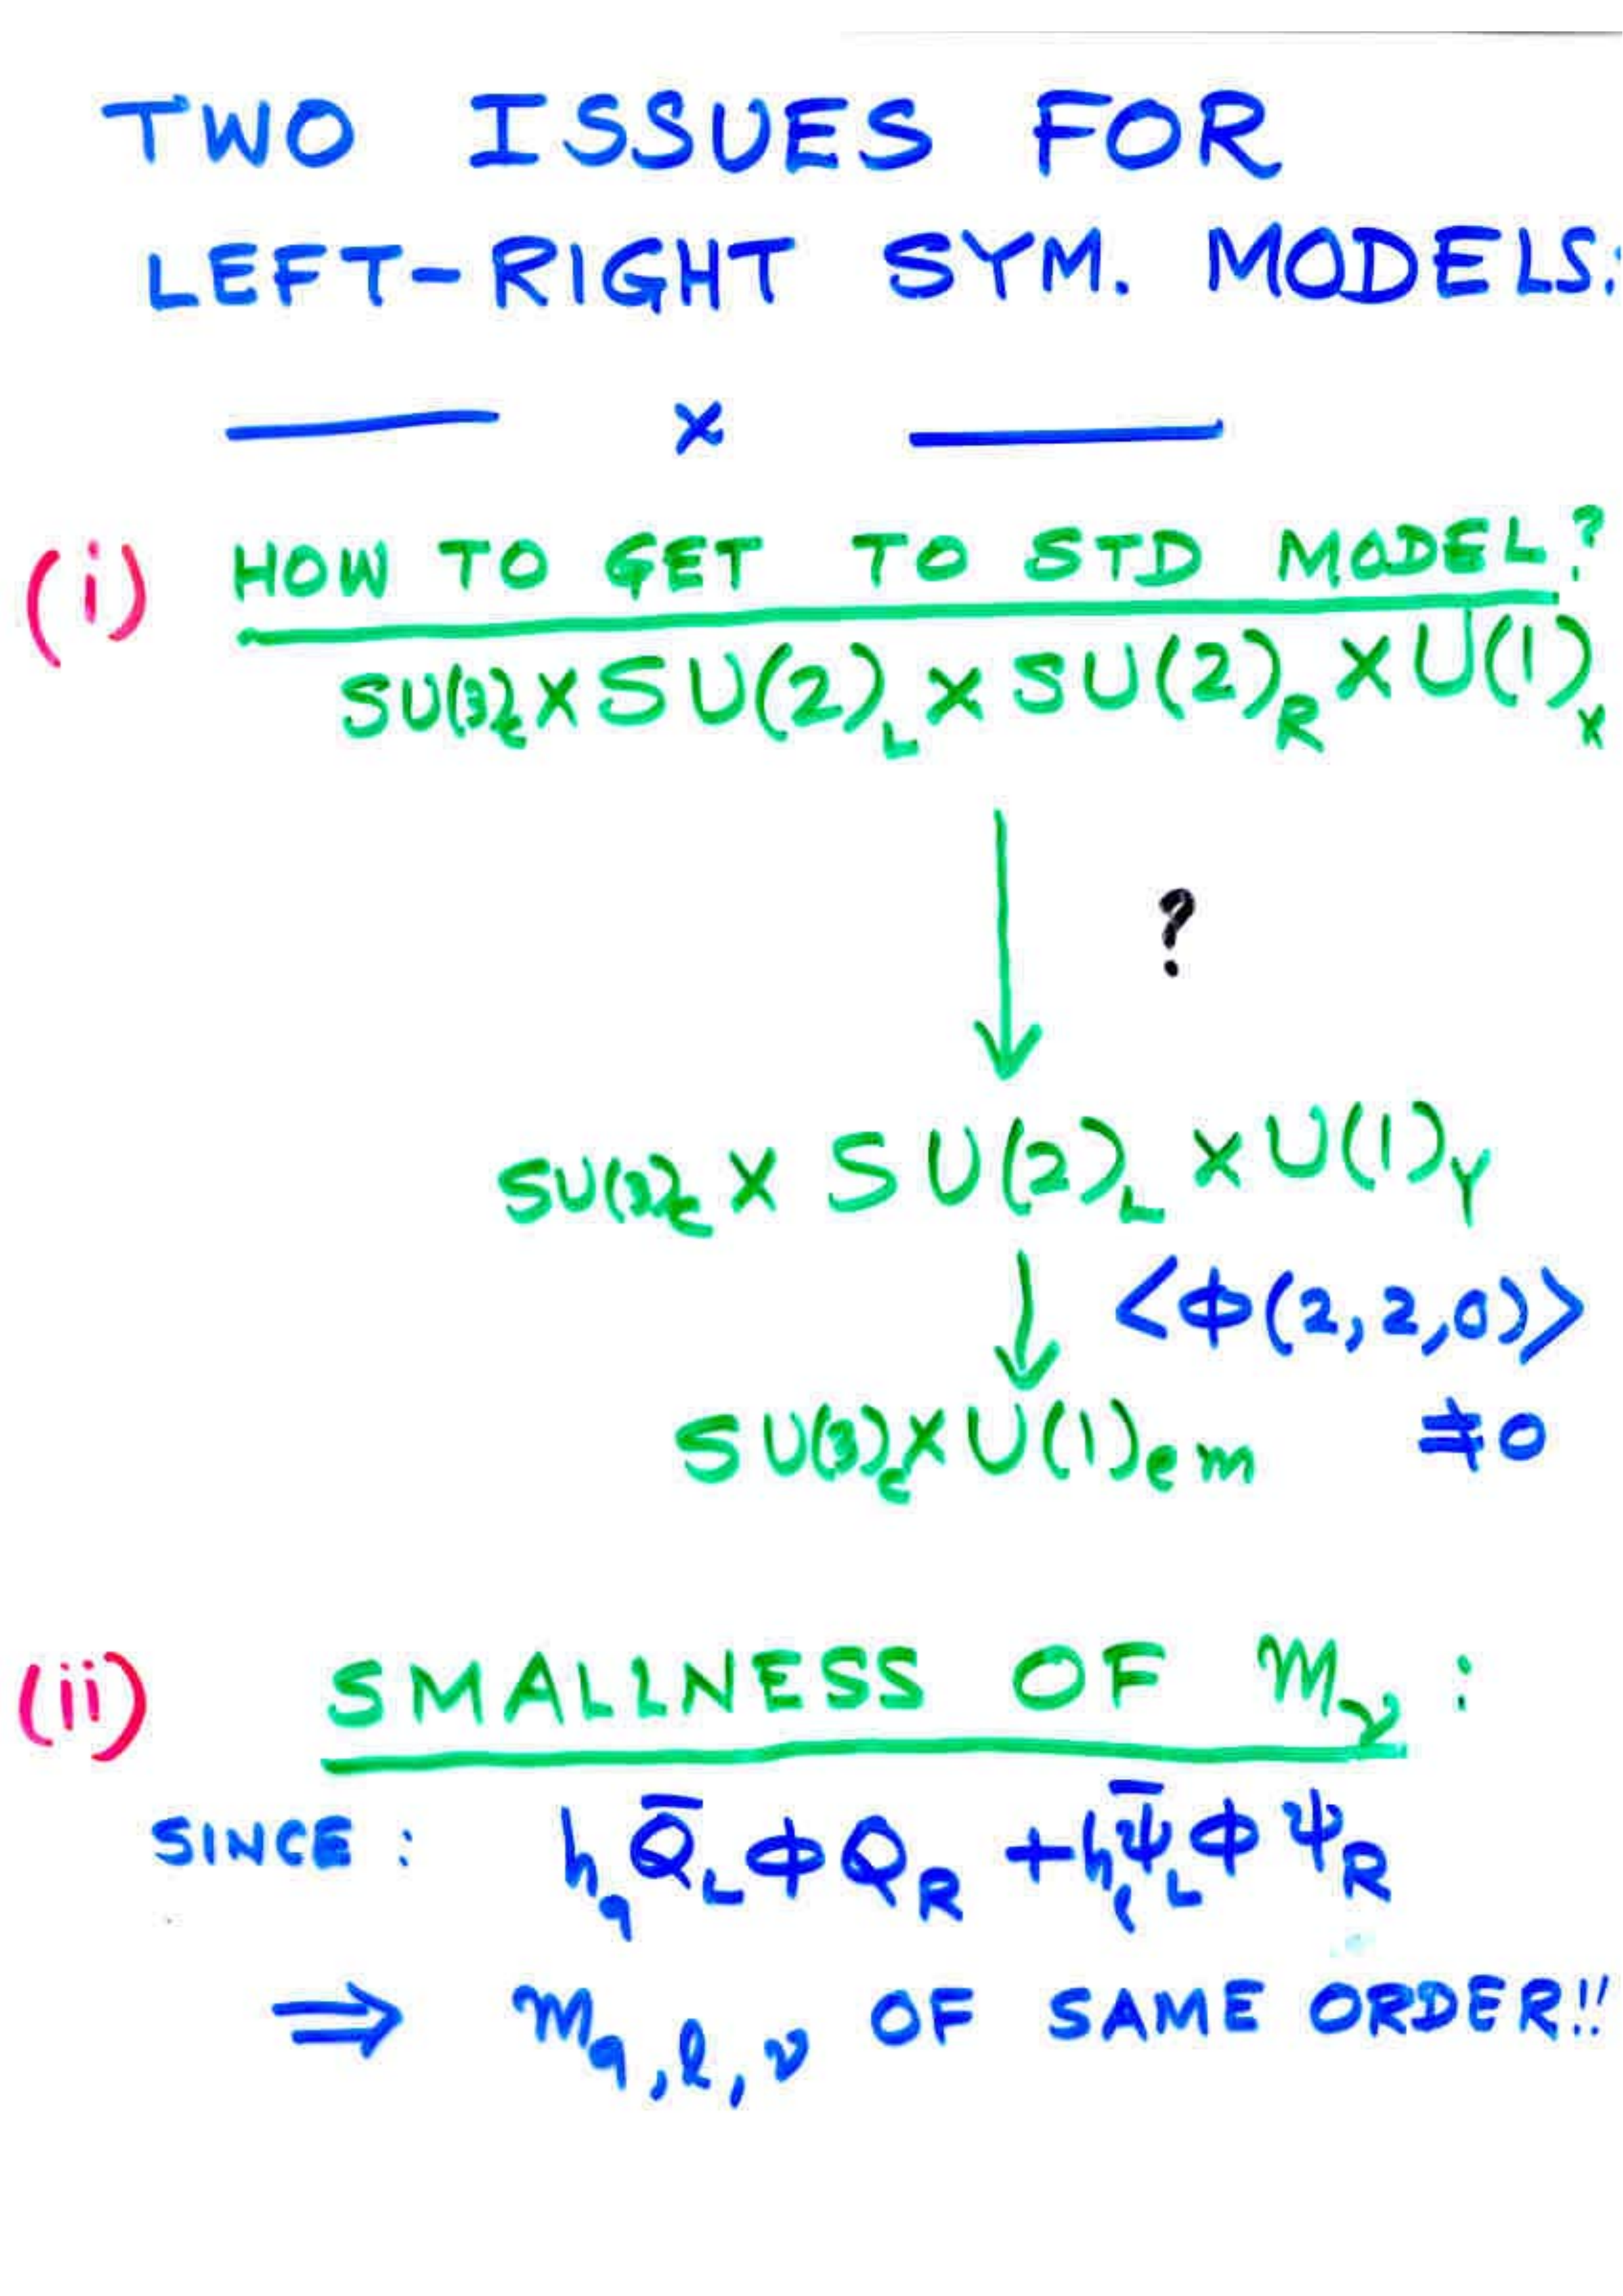 TWO ISSUES FOR
LEFT-RIGHT SYM. MODELS:
x
(i) HOW TO GET TO STD MODEL?
SU(3)_c × SU(2)_L × SU(2)_R × U(1)_x
?
SU(3)_c × SU(2)_L × U(1)_Y
<Φ(2,2,0)>
SU(3)_c × U(1)_em ≠0
(ii) SMALLNESS OF m_ν :
SINCE : h_q Q̄_L Φ Q_R + h_ℓ ψ̄_L Φ ψ_R
⇒ m_q,ℓ,ν OF SAME ORDER!!